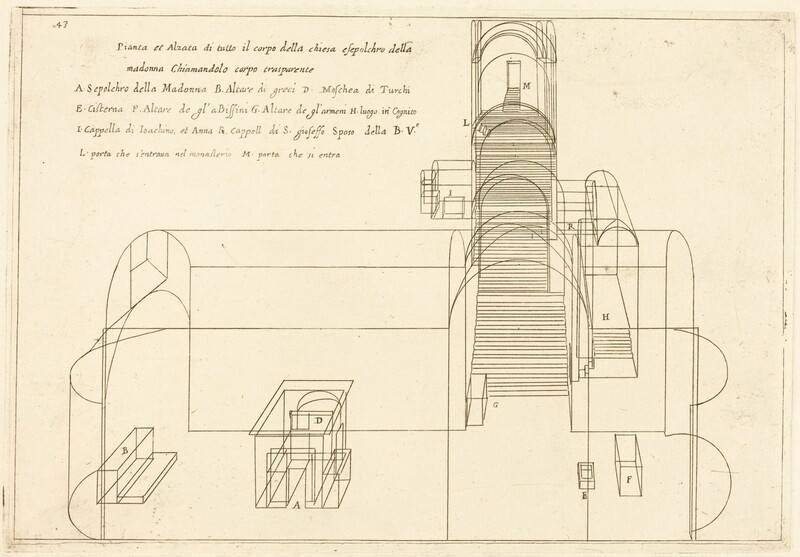 47
Pianta et Alzata di tutto il corpo della chiesa esepolchro della
madonna Chiamandolo corpo trasparente
A Sepolchro della Madonna B. Altare di greci D. Moschea di Turchi
E. Cisterna F. Altare de gl'aBissini G. Altare de gl'armeni H. luogo in Cognito
I. Cappella di Ioachino, et Anna R. Cappell di S. gioseffo Sposo della B. V.
L. porta che s'entraua nel monasterio M. porta che si entra
M
L
I
R
H
G
D
B
A
E
F